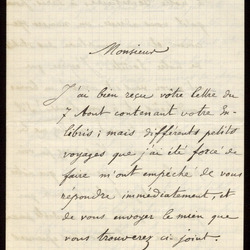 Monsieur
J'ai bien reçu vôtre lettre du
7 Aout contenant votre Ex-
libris ; mais différents petits
voyages que j'ai été forcé de
faire m'ont empêché de vous
répondre immédiatement, et
de vous envoyer le mien que
vous trouverez ci-joint.